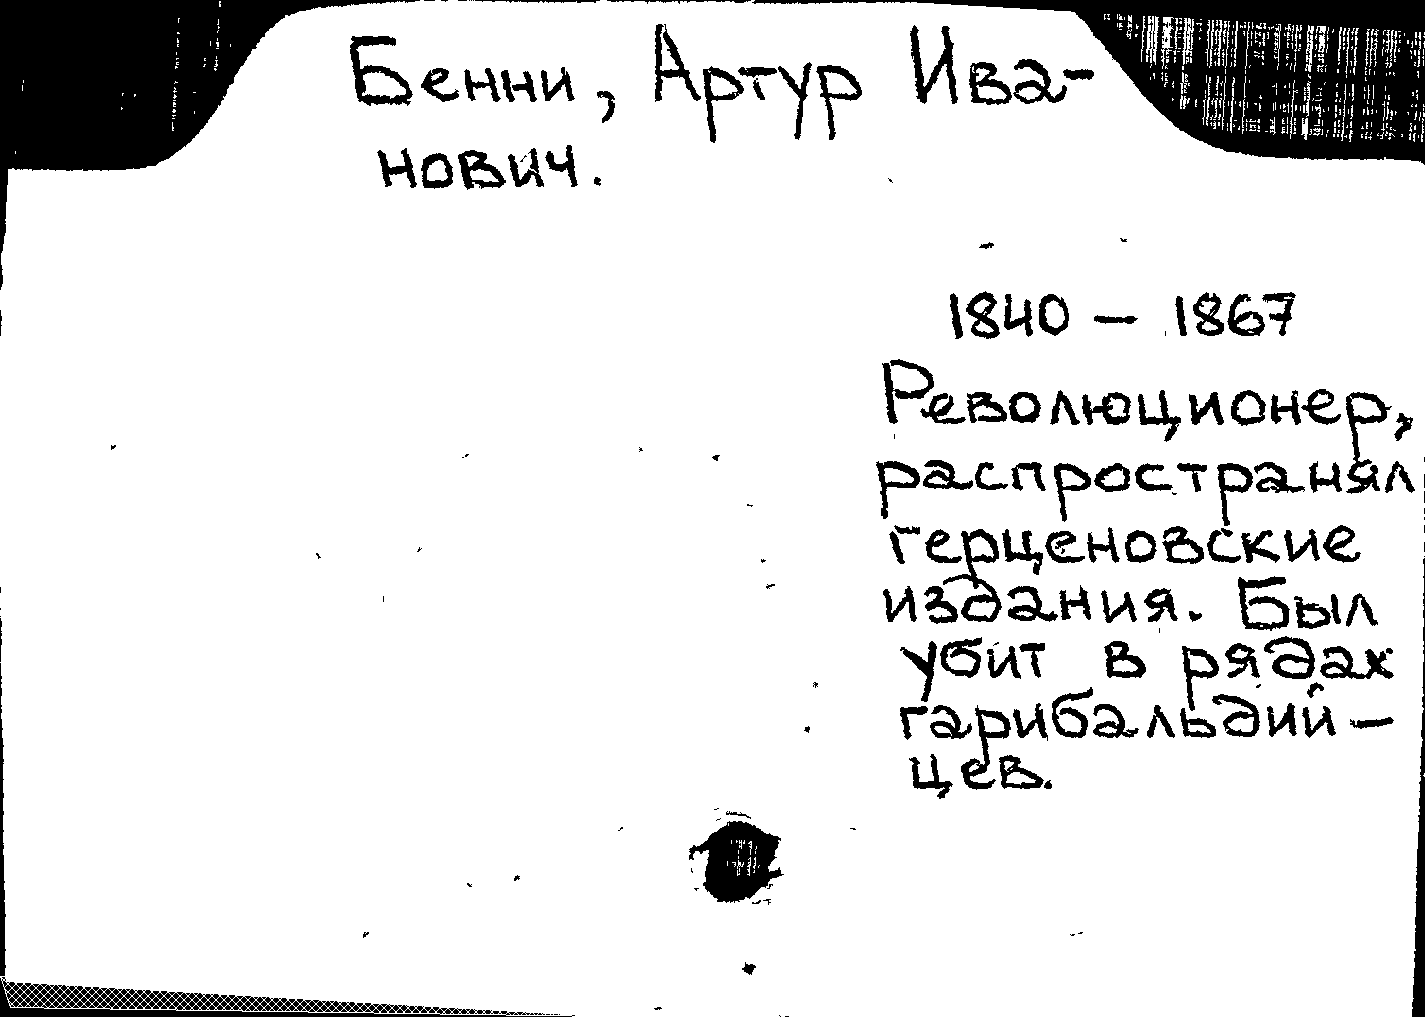 Бенни, Артур Ива-
нович.
1840 – 1867
Революционер,
распространял
герценовские
издания. Был
убит в рядах
гарибальдий-
цев.